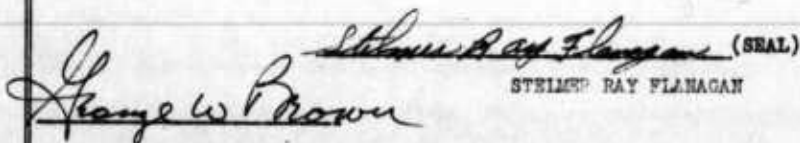 Stelmer Ray Flanagan (SEAL)
STELMER RAY FLANAGAN
George W Brown